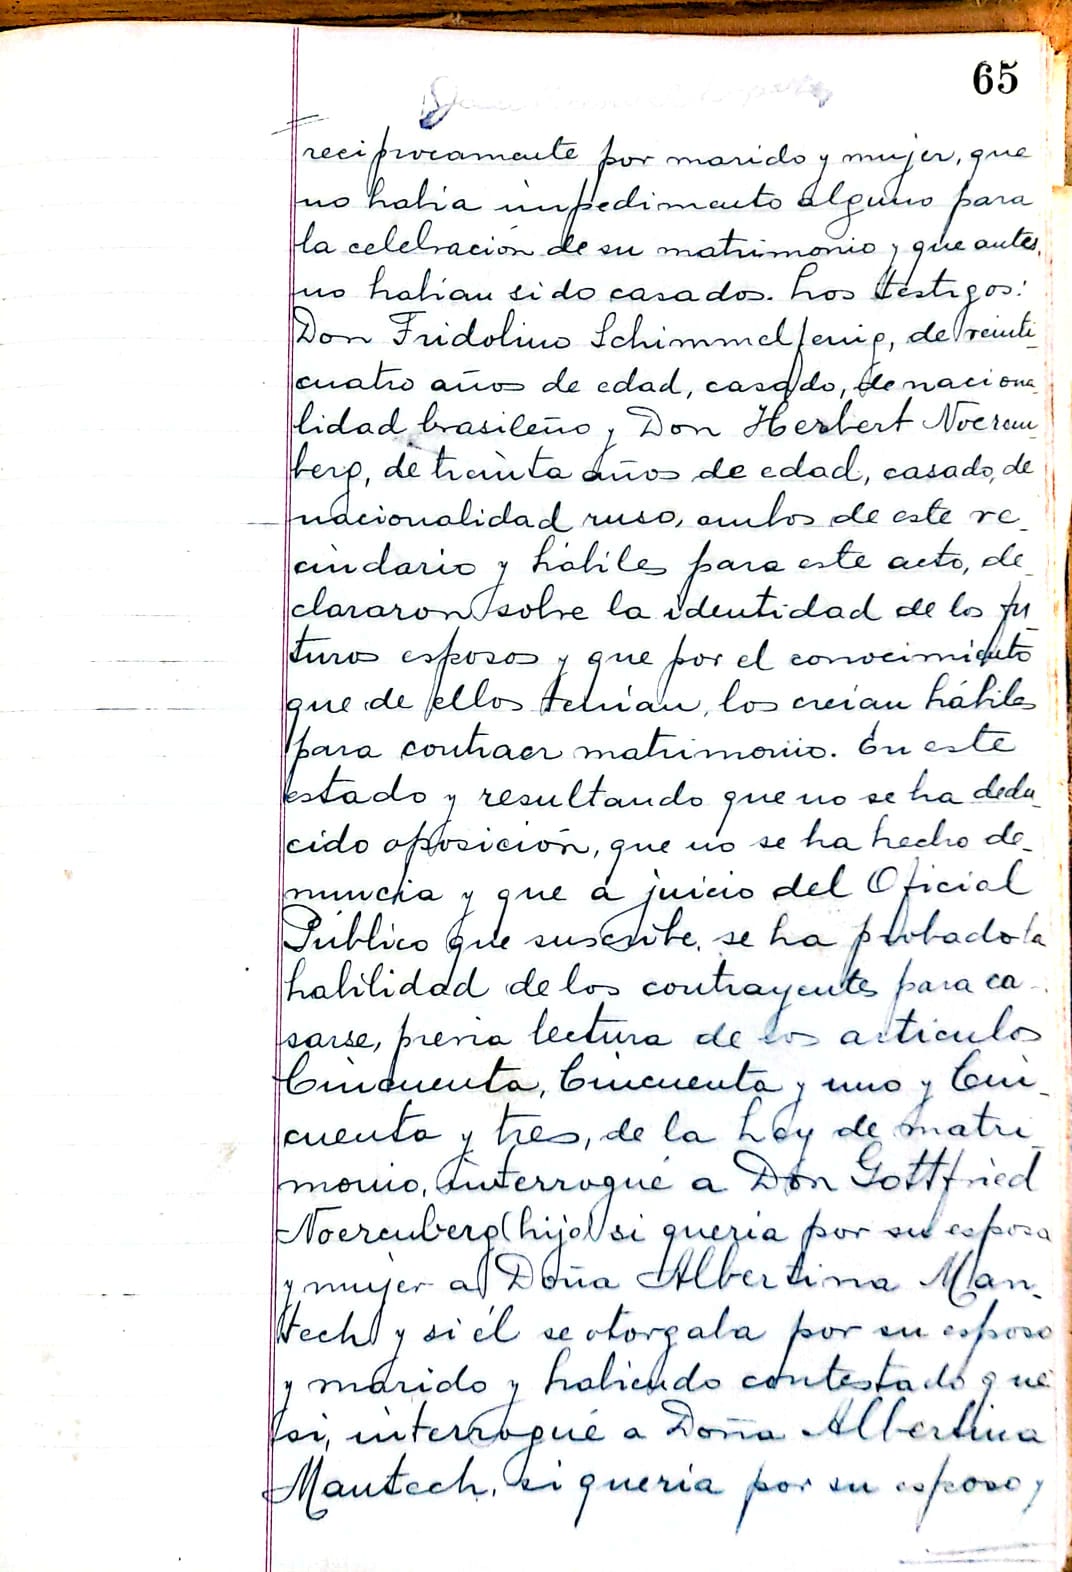 65
reciprocamente por marido y mujer, que
no habia impedimento alguno para
la celebración de su matrimonio y que antes
no habian sido casados. Los testigos:
Don Fridolino Schimmelfenig, de veinti-
cuatro años de edad, casado, de naciona-
lidad brasileño y Don Herbert Noeren-
berg, de treinta años de edad, casado, de
nacionalidad ruso, ambos de este ve-
cindario y hábiles para este acto, de-
clararon sobre la identidad de los fu-
turos esposos y que por el conocimiento
que de ellos tenian, los creian hábiles
para contraer matrimonio. En este
estado y resultando que no se ha dedu-
cido oposición, que no se ha hecho de-
nuncia y que a juicio del Oficial
Público que suscribe, se ha probado la
habilidad de los contrayentes para ca-
sarse, previa lectura de los articulos
Cincuenta, Cincuenta y uno y Cin-
cuenta y tres, de la Ley de matri-
monio, interrogué a Don Gottfried
Noerenberg (hijo) si queria por su esposa
y mujer a Doña Albertina Man-
tech y si él se otorgaba por su esposo
y marido y habiendo contestado que
si, interrogué a Doña Albertina
Mantech, si queria por su esposo y